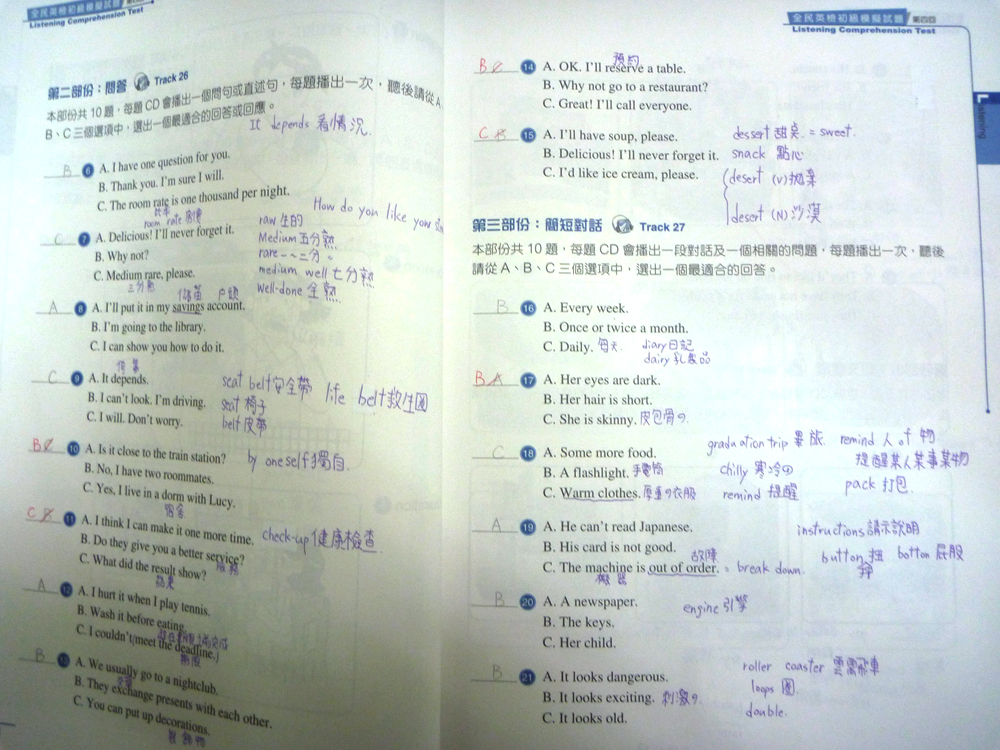 全民英檢初級模擬試題
Listening Comprehension Test
第二部份：問答 Track 26
本部份共 10 題，每題 CD 會播出一個問句或直述句，每題播出一次，聽後請從 A、
B、C 三個選項中，選出一個最適合的回答或回應。
It depends 看情況.
B 6 A. I have one question for you.
B. Thank you. I'm sure I will.
C. The room rate is one thousand per night.
room rate 房價
How do you like your
C 7 A. Delicious! I'll never forget it.
B. Why not?
C. Medium rare, please.
三分熟
raw 生的
Medium 五分熟
rare 一~二分
medium well 七分熟
well-done 全熟
儲蓄 户頭
A 8 A. I'll put it in my savings account.
B. I'm going to the library.
C. I can show you how to do it.
C 9 A. It depends.
B. I can't look. I'm driving.
C. I will. Don't worry.
seat belt 安全帶 life belt 救生圈
seat 椅子
belt 皮帶
B 10 A. Is it close to the train station?
B. No, I have two roommates.
C. Yes, I live in a dorm with Lucy.
宿舍
by oneself 獨自.
C B 11 A. I think I can make it one more time.
B. Do they give you a better service?
服務
C. What did the result show?
結果
check-up 健康檢查
A 12 A. I hurt it when I play tennis.
B. Wash it before eating.
C. I couldn't (meet the deadline.)
期限
B 13 A. We usually go to a nightclub.
交換
B. They exchange presents with each other.
C. You can put up decorations.
裝飾物
全民英檢初級模擬試題 第四回
Listening Comprehension Test
Listening
預約
B 14 A. OK. I'll reserve a table.
B. Why not go to a restaurant?
C. Great! I'll call everyone.
C B 15 A. I'll have soup, please.
B. Delicious! I'll never forget it.
C. I'd like ice cream, please.
dessert 甜桌. = sweet.
snack 點心
desert (v) 拋棄
desert (N) 沙漠
第三部份：簡短對話 Track 27
本部份共 10 題，每題 CD 會播出一段對話及一個相關的問題，每題播出一次，聽後
請從 A、B、C 三個選項中，選出一個最適合的回答。
B 16 A. Every week.
B. Once or twice a month.
C. Daily. 每天.
diary 日記
dairy 乳製品
B A 17 A. Her eyes are dark.
B. Her hair is short.
C. She is skinny. 皮包骨の.
C 18 A. Some more food.
B. A flashlight. 手電筒
C. Warm clothes. 厚重の衣服
graduation trip 畢旅. remind 人 of 物.
提醒某人某事某物
chilly 寒冷の
remind 提醒
pack 打包.
A 19 A. He can't read Japanese.
B. His card is not good.
故障
C. The machine is out of order. = break down.
機器
instructions 請示說明
button 扭 botton 屁股
B 20 A. A newspaper.
B. The keys.
C. Her child.
engine 引擎
B 21 A. It looks dangerous.
B. It looks exciting. 刺激の.
C. It looks old.
roller coaster 雲霄飛車
loops 圈.
double.